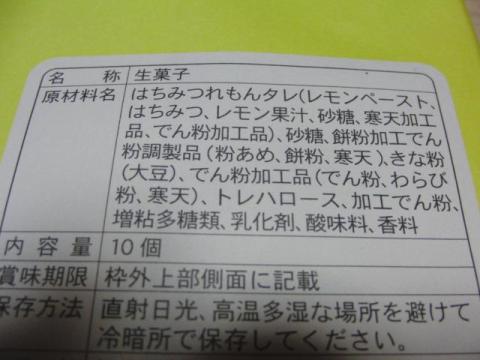 名 称 生菓子
原材料名 はちみつれもんタレ(レモンペースト、
はちみつ、レモン果汁、砂糖、寒天加工
品、でん粉加工品)、砂糖、餅粉加工でん
粉調製品(粉あめ、餅粉、寒天)、きな粉
(大豆)、でん粉加工品(でん粉、わらび
粉、寒天)、トレハロース、加工でん粉、
増粘多糖類、乳化剤、酸味料、香料
内容量 10個
賞味期限 枠外上部側面に記載
保存方法 直射日光、高温多湿な場所を避けて
冷暗所で保存してください。